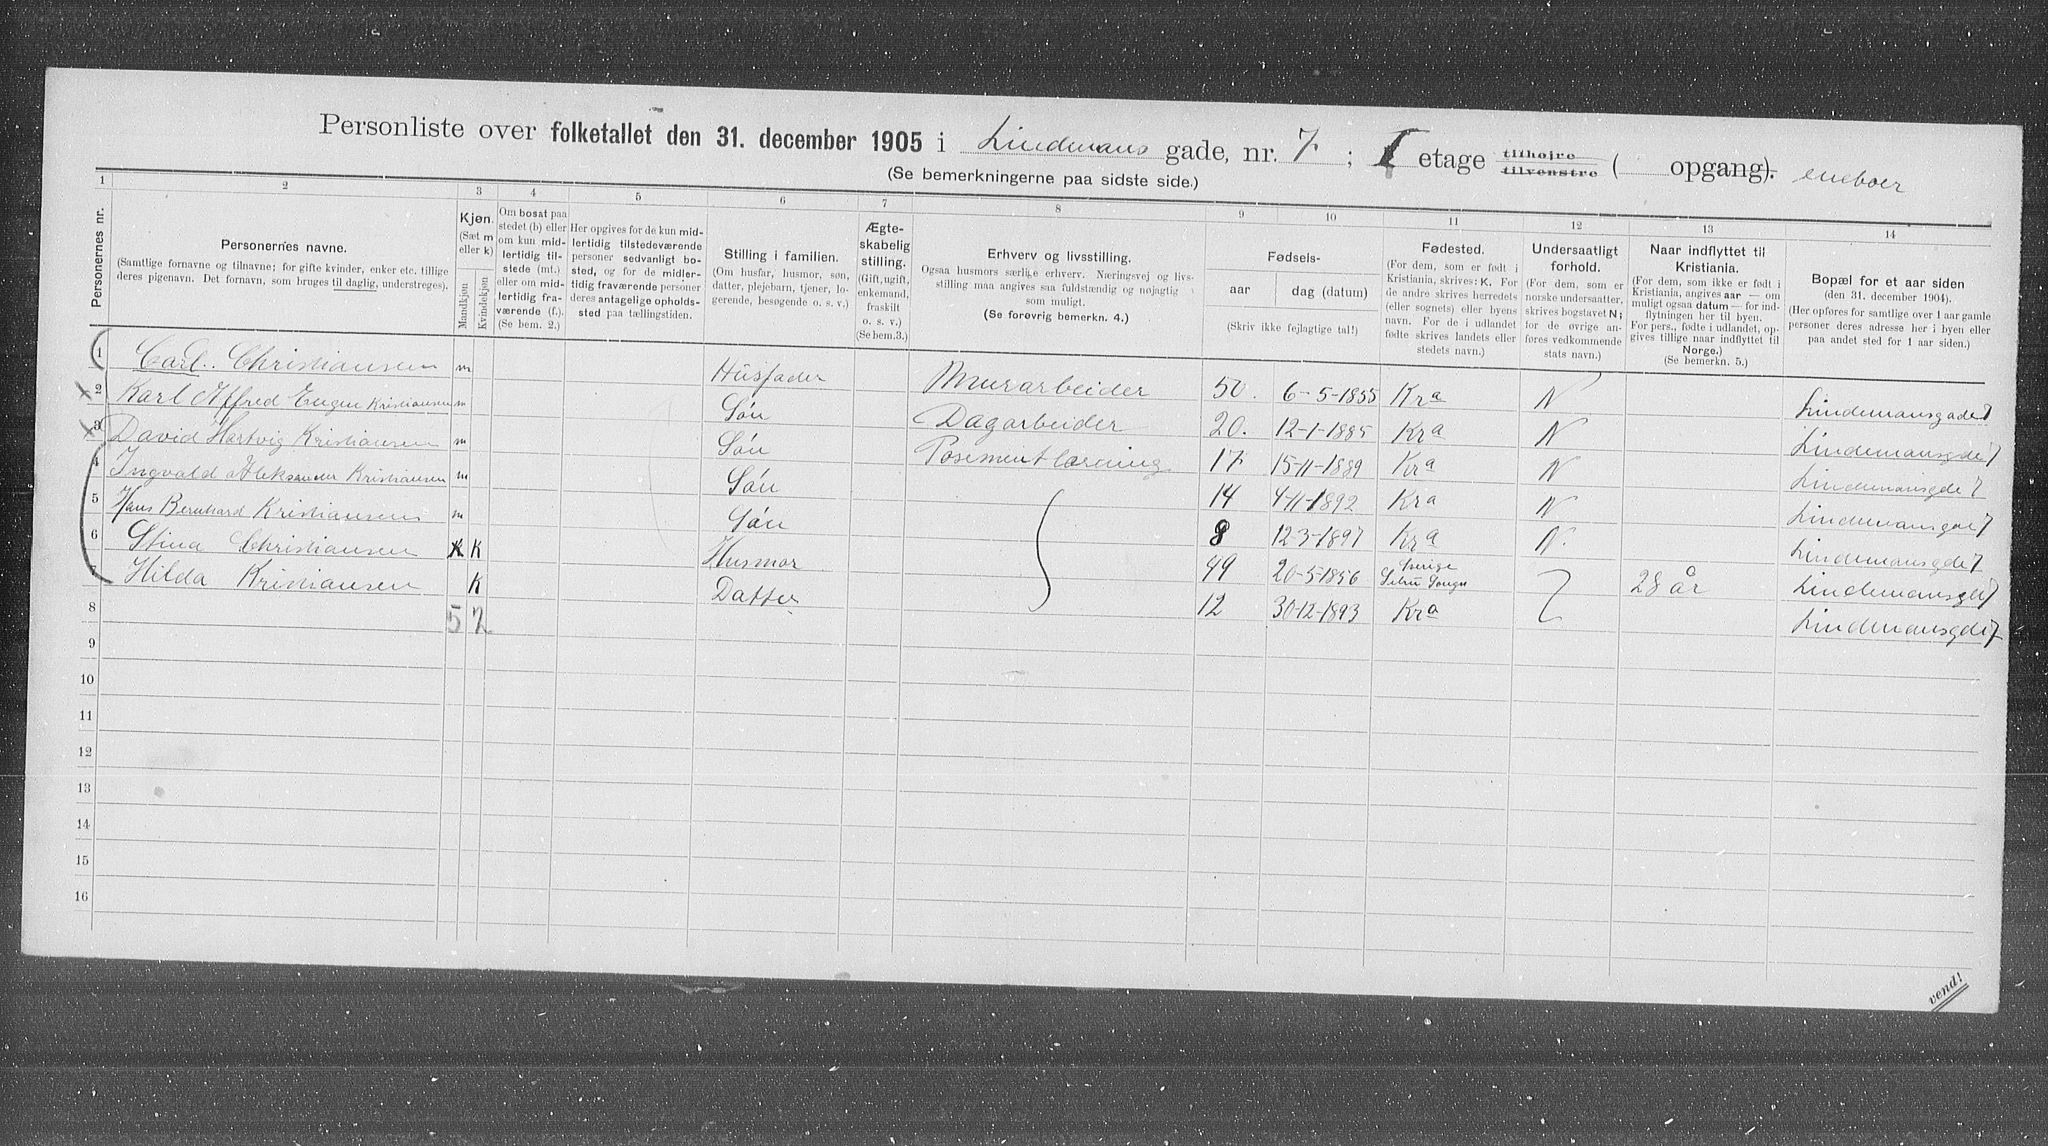 Personliste over folketallet den 31. december 1905 i Lindemans gade, nr. 7 ; I etage tilhøjre tilvenstre ( opgang). eneboer
(Se bemerkningerne paa sidste side.)
1 2 3 4 5 6 7 8 9 10 11 12 13 14
Personernes nr.
Personernes navne.
(Samtlige fornavne og tilnavne; for gifte kvinder, enker etc. tillige
deres pigenavn. Det fornavn, som bruges til daglig, understreges).
Kjøn.
(Sæt m
eller k)
Mandkjøn
Kvindekjøn
Om bosat paa
stedet (b) eller
om kun mid-
lertidig til-
stede (mt.)
eller om mid-
lertidig fra-
værende (f.).
(Se bem. 2.)
Her opgives for de kun mid-
lertidig tilstedeværende
personer sedvanligt bo-
sted, og for de midler-
tidig fraværende personer
deres antagelige opholds-
sted paa tællingstiden.
Stilling i familien.
(Om husfar, husmor, søn,
datter, plejebarn, tjener, lo-
gerende, besøgende o. s. v.)
Ægte-
skabelig
stilling.
(Gift, ugift,
enkemand,
fraskilt
o. s. v.)
(Se bem.3.)
Erhverv og livsstilling.
Ogsaa husmors særlige erhverv. Næringsvej og livs-
stilling maa angives saa fuldstændig og nøjagtig
som muligt.
(Se forøvrig bemerkn. 4.)
Fødsels-
aar dag (datum)
(Skriv ikke fejlagtige tal!)
Fødested.
(For dem, som er født i
Kristiania, skrives: K. For
de andre skrives herredets
(eller sognets) eller byens
navn. For de i udlandet
fødte skrives landets eller
stedets navn.)
Undersaatligt
forhold.
(For dem, som er
norske undersaatter,
skrives bogstavet N;
for de øvrige an-
føres vedkommende
stats navn.)
Naar indflyttet til
Kristiania.
(For dem, som ikke er født i
Kristiania, angives aar — om
muligt ogsaa datum — for ind-
flytningen her til byen.
For pers., fødte i udlandet, op-
gives tillige naar indflyttet til
Norge.)
(Se bemerkn. 5.)
Bopæl for et aar siden
(den 31. december 1904).
(Her opføres for samtlige over 1 aar gamle
personer deres adresse her i byen eller
paa andet sted for 1 aar siden.)
1 Carl. Christiansen m Husfader Murarbeider 50. 6-5-1855 Kra N Lindemansgade 7
2 Karl Alfred Eugen Kristiansen m Søn Dagarbeider 20. 12-1-1885 Kra N Lindemansgde 7
3 David Hartvig Kristiansen m Søn Posementlærling 17 15-11-1889 Kra N Lindemansgde 7
4 Ingvald Aleksander Kristiansen m Søn 14 4-11-1892 Kra N Lindemansgde 7
5 Hans Bernhard Kristiansen m Søn 8 12-3-1897 Kra N. Lindemansgde 7
6 Stina Christiansen K K Husmor 49 20-5-1856 Sverige 28 år Lindemansgde 7
7 Hilda Kristiansen K Datter 12 30-12-1893 Kra Lindemansgde 7
8 5 2
9
10
11
12
13
14
15
16
vend!